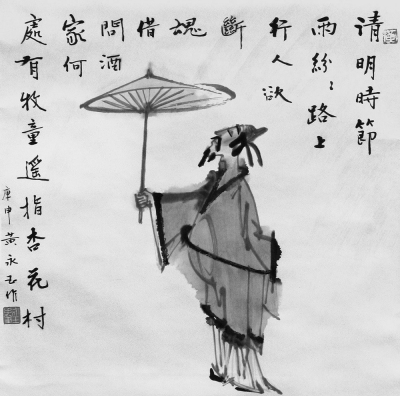 请明時節
雨紛〻路上
行人欲
斷
魂
借
問酒
家何
處有牧童遥指杏花村
庚申黄永玉作